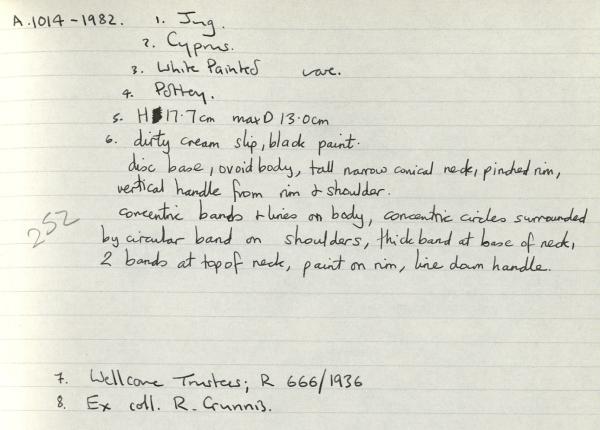 A.1014-1982. 1. Jug.
2. Cyprus.
3. White Painted ware.
4. Pottery.
5. H 17.7cm max D 13.0cm
6. dirty cream slip, black paint.
disc base, ovoid body, tall narrow conical neck, pinched rim,
vertical handle from rim & shoulder.
concentric bands & lines on body, concentric circles surrounded
252
by circular band on shoulders, thick band at base of neck,
2 bands at top of neck, paint on rim, line down handle.
7. Wellcome Trustees; R 666/1936
8. Ex coll. R. Gunnis.